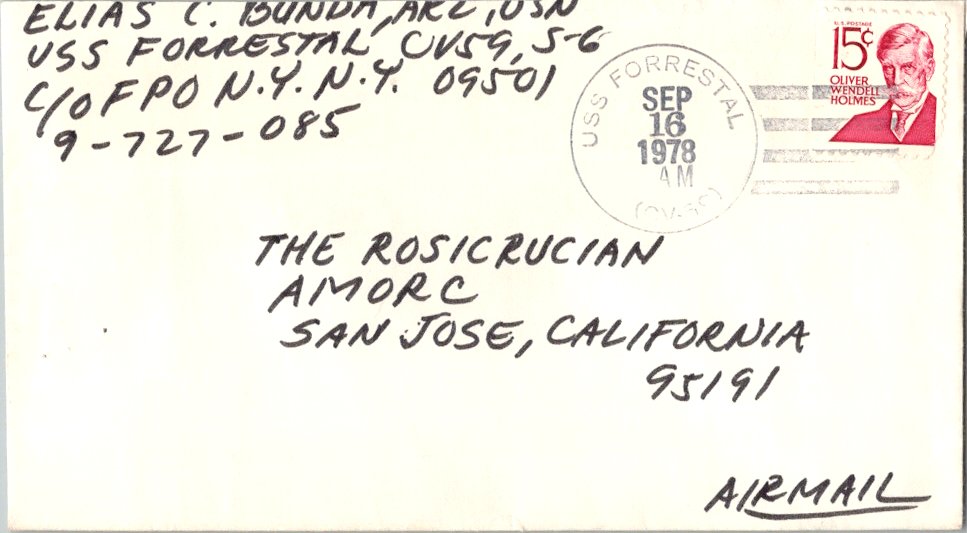 ELIAS C. BUNDA, AKC, USN
USS FORRESTAL, CV59, S-6
C/O FPO N.Y. N.Y. 09501
9-727-085
USS FORRESTAL
SEP
16
1978
AM
(CV-59)
U.S. POSTAGE
15¢
OLIVER
WENDELL
HOLMES
THE ROSICRUCIAN
AMORC
SAN JOSE, CALIFORNIA
95191
AIRMAIL